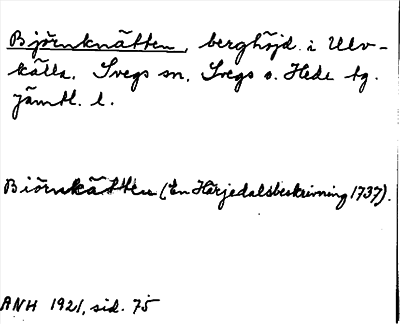 Björnknätten, berghöjd i Ulv-
källa, Svegs sn, Svegs o. Hede tg.
Jämtl. l.
Biörnkätten (En Härjedalsbeskrivning 1737).
ANH 1921, sid. 75